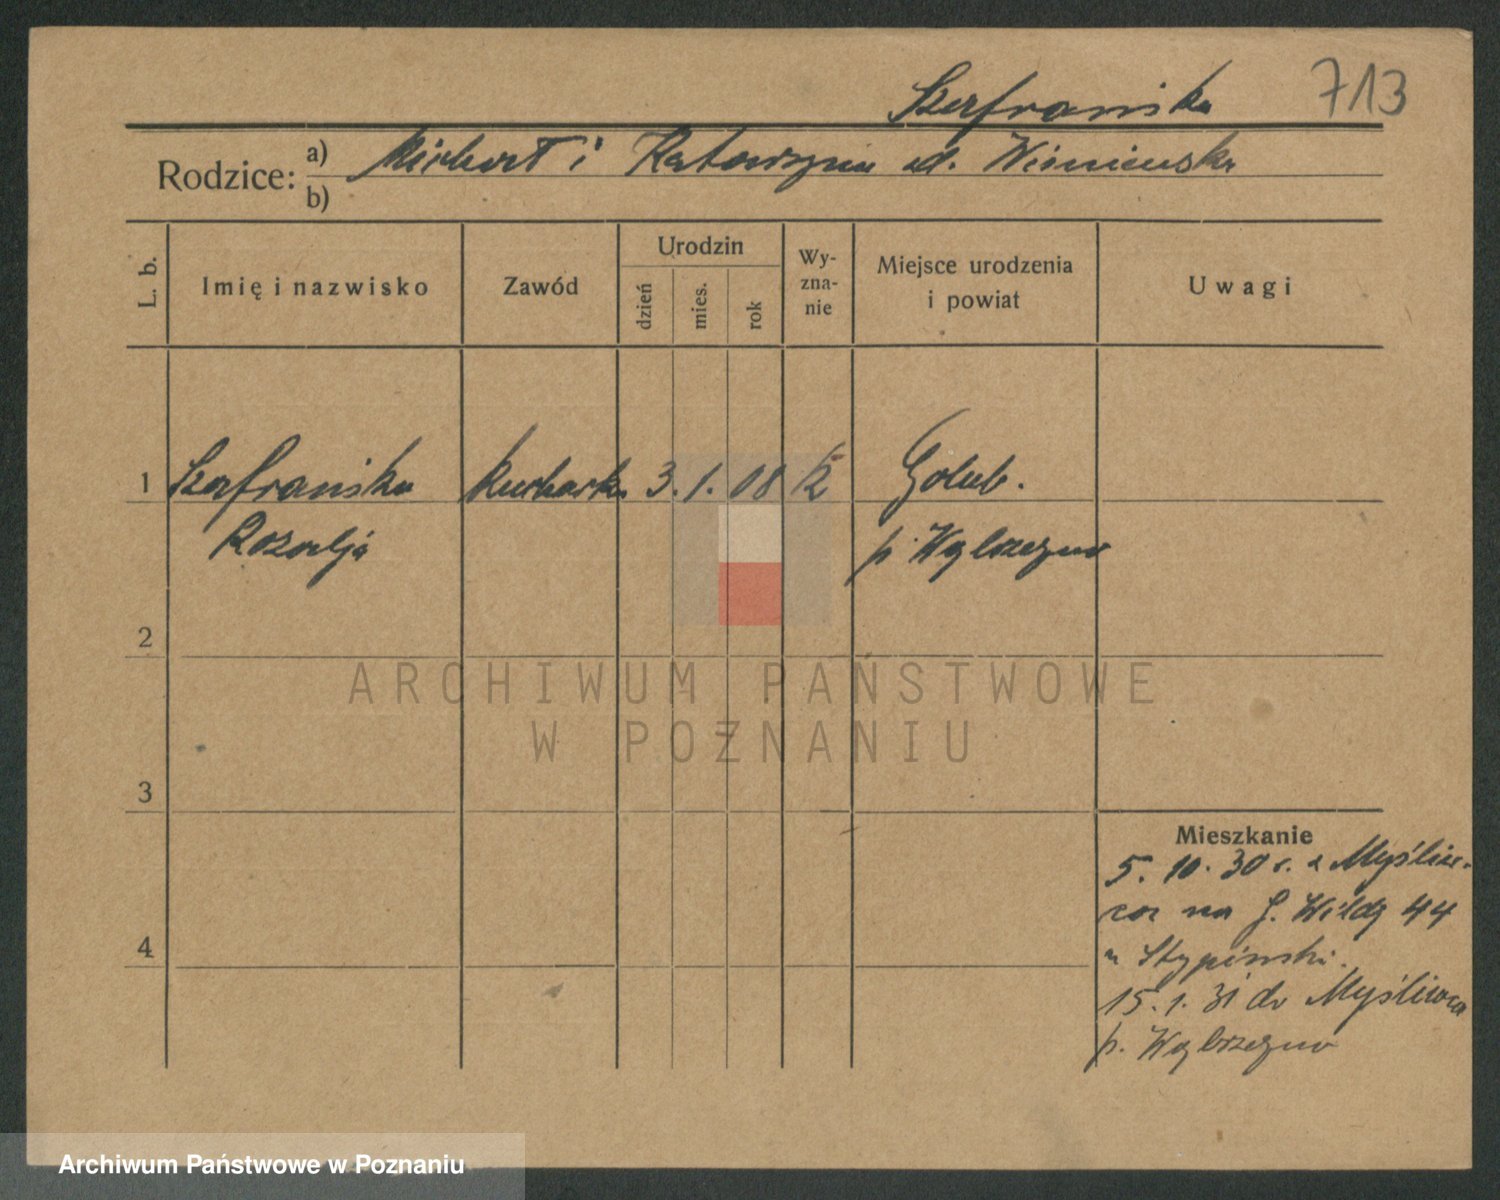 Szafrańska 713
Rodzice: a) Michał i Katarzyna d. Wiśniewska
b)
L. b. Imię i nazwisko Zawód Urodzin dzień mies. rok Wy-zna-nie Miejsce urodzenia i powiat Uwagi
1 Szafrańska kucharka 3. 1. 08 k Golub.
Rozalja p. Wąbrzeźno
2
ARCHIWUM PAŃSTWOWE
W POZNANIU
3
Mieszkanie
5. 10. 30 r. z Myśliw-
ca na G. Wildę 44
u Stypiński.
4
15. 1. 31 do Myśliwca
p. Wąbrzeźno
Archiwum Państwowe w Poznaniu